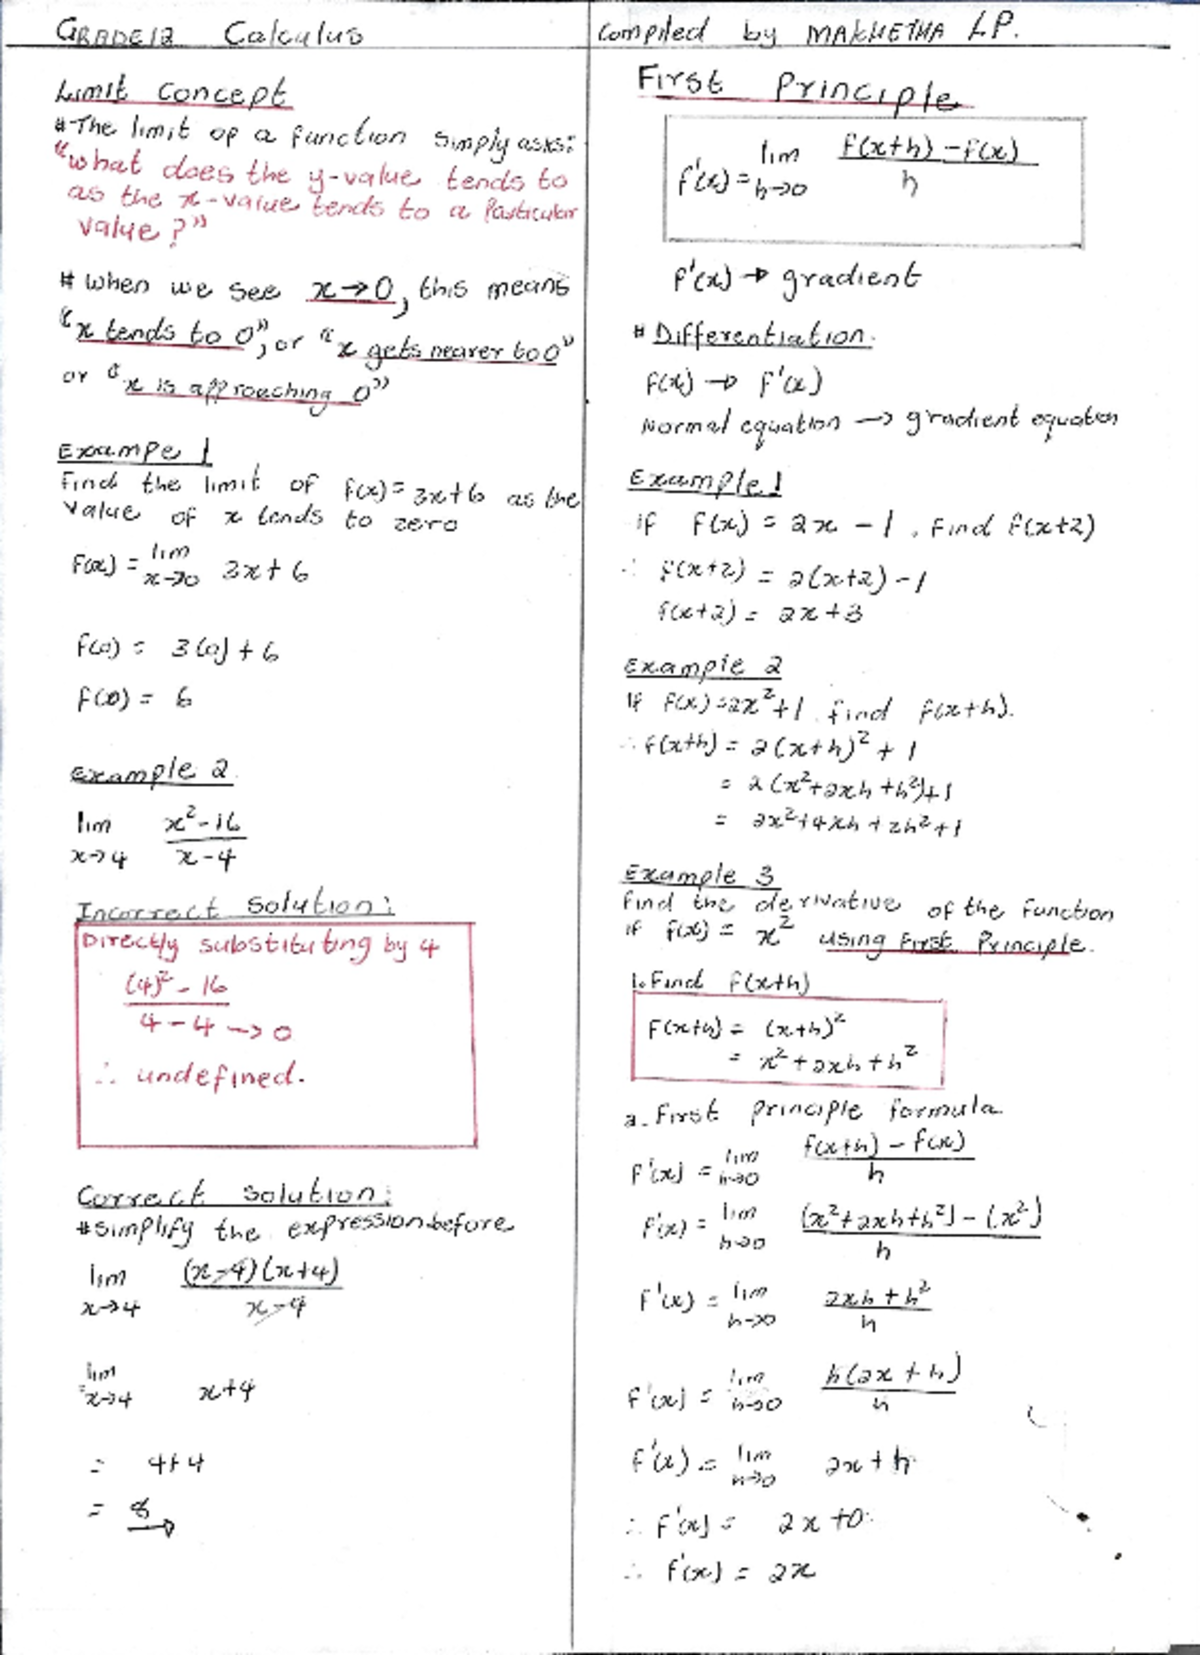 GRADE12 Calculus
Compiled by MAKHETHA LP.
Limit Concept
#The limit of a function simply asks:
"what does the y-value tends to
as the x-value tends to a Particular
value?"
# When we see x→0, this means
"x tends to 0", or "x gets nearer to 0"
or "x is approaching 0"
Exampe 1
Find the limit of f(x)=3x+6 as the
value of x tends to zero
F(x) = lim x→0 3x+6
f(0) = 3(0)+6
f(0) = 6
Example 2.
lim x→4 (x²-16)/(x-4)
Incorrect Solution:
Directly substituting by 4
((4)²-16)/(4-4) → 0
∴ undefined.
Correct Solution:
#Simplify the expression before
lim x→4 (x-4)(x+4)/(x-4)
=lim x→4 x+4
= 4+4
= 8
First Principle
f'(x) = lim h→0 (f(x+h)-f(x))/h
f'(x) → gradient
# Differentiation.
f(x) → f'(x)
Normal equation → gradient equation
Example 1
if f(x) = 2x - 1. Find f(x+2)
∴ f(x+2) = 2(x+2)-1
f(x+2) = 2x+3
Example 2
If f(x)=2x²+1 find f(x+h).
∴ f(x+h) = 2(x+h)² + 1
= 2(x²+2xh+h²)+1
= 2x²+4xh+2h²+1
Example 3
Find the derivative of the function
if f(x) = x² using First Principle.
1. Find f(x+h)
F(x+h) = (x+h)²
= x²+2xh+h²
2. First principle formula
F'(x) = lim h→0 (f(x+h)-f(x))/h
f'(x) = lim h→0 ((x²+2xh+h²)-(x²))/h
F'(x) = lim h→0 (2xh+h²)/h
F'(x) = lim h→0 h(2x+h)/h
F'(x) = lim h→0 2x+h
∴ F'(x) = 2x+0
∴ f'(x) = 2x